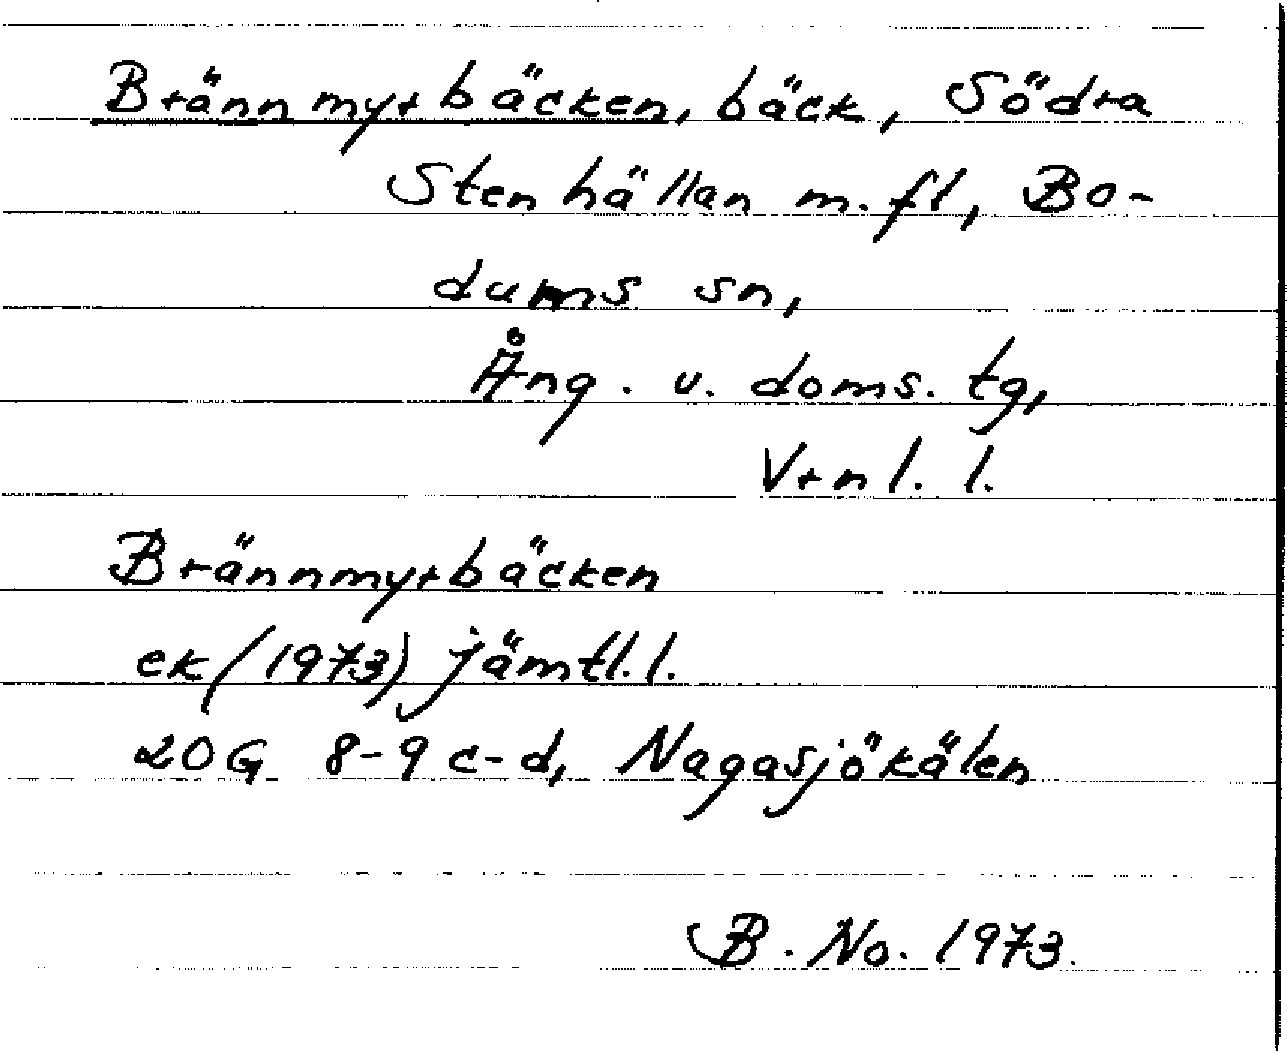 Brännmyrbäcken, bäck, Södra
Stenhällan m.fl, Bo-
dums sn,
Ång. v. doms. tg,
Vrnl. l.
Brännmyrbäcken
ek (1973) jämtl. l.
20G 8-9 c-d, Nagasjökälen
B. No. 1973.